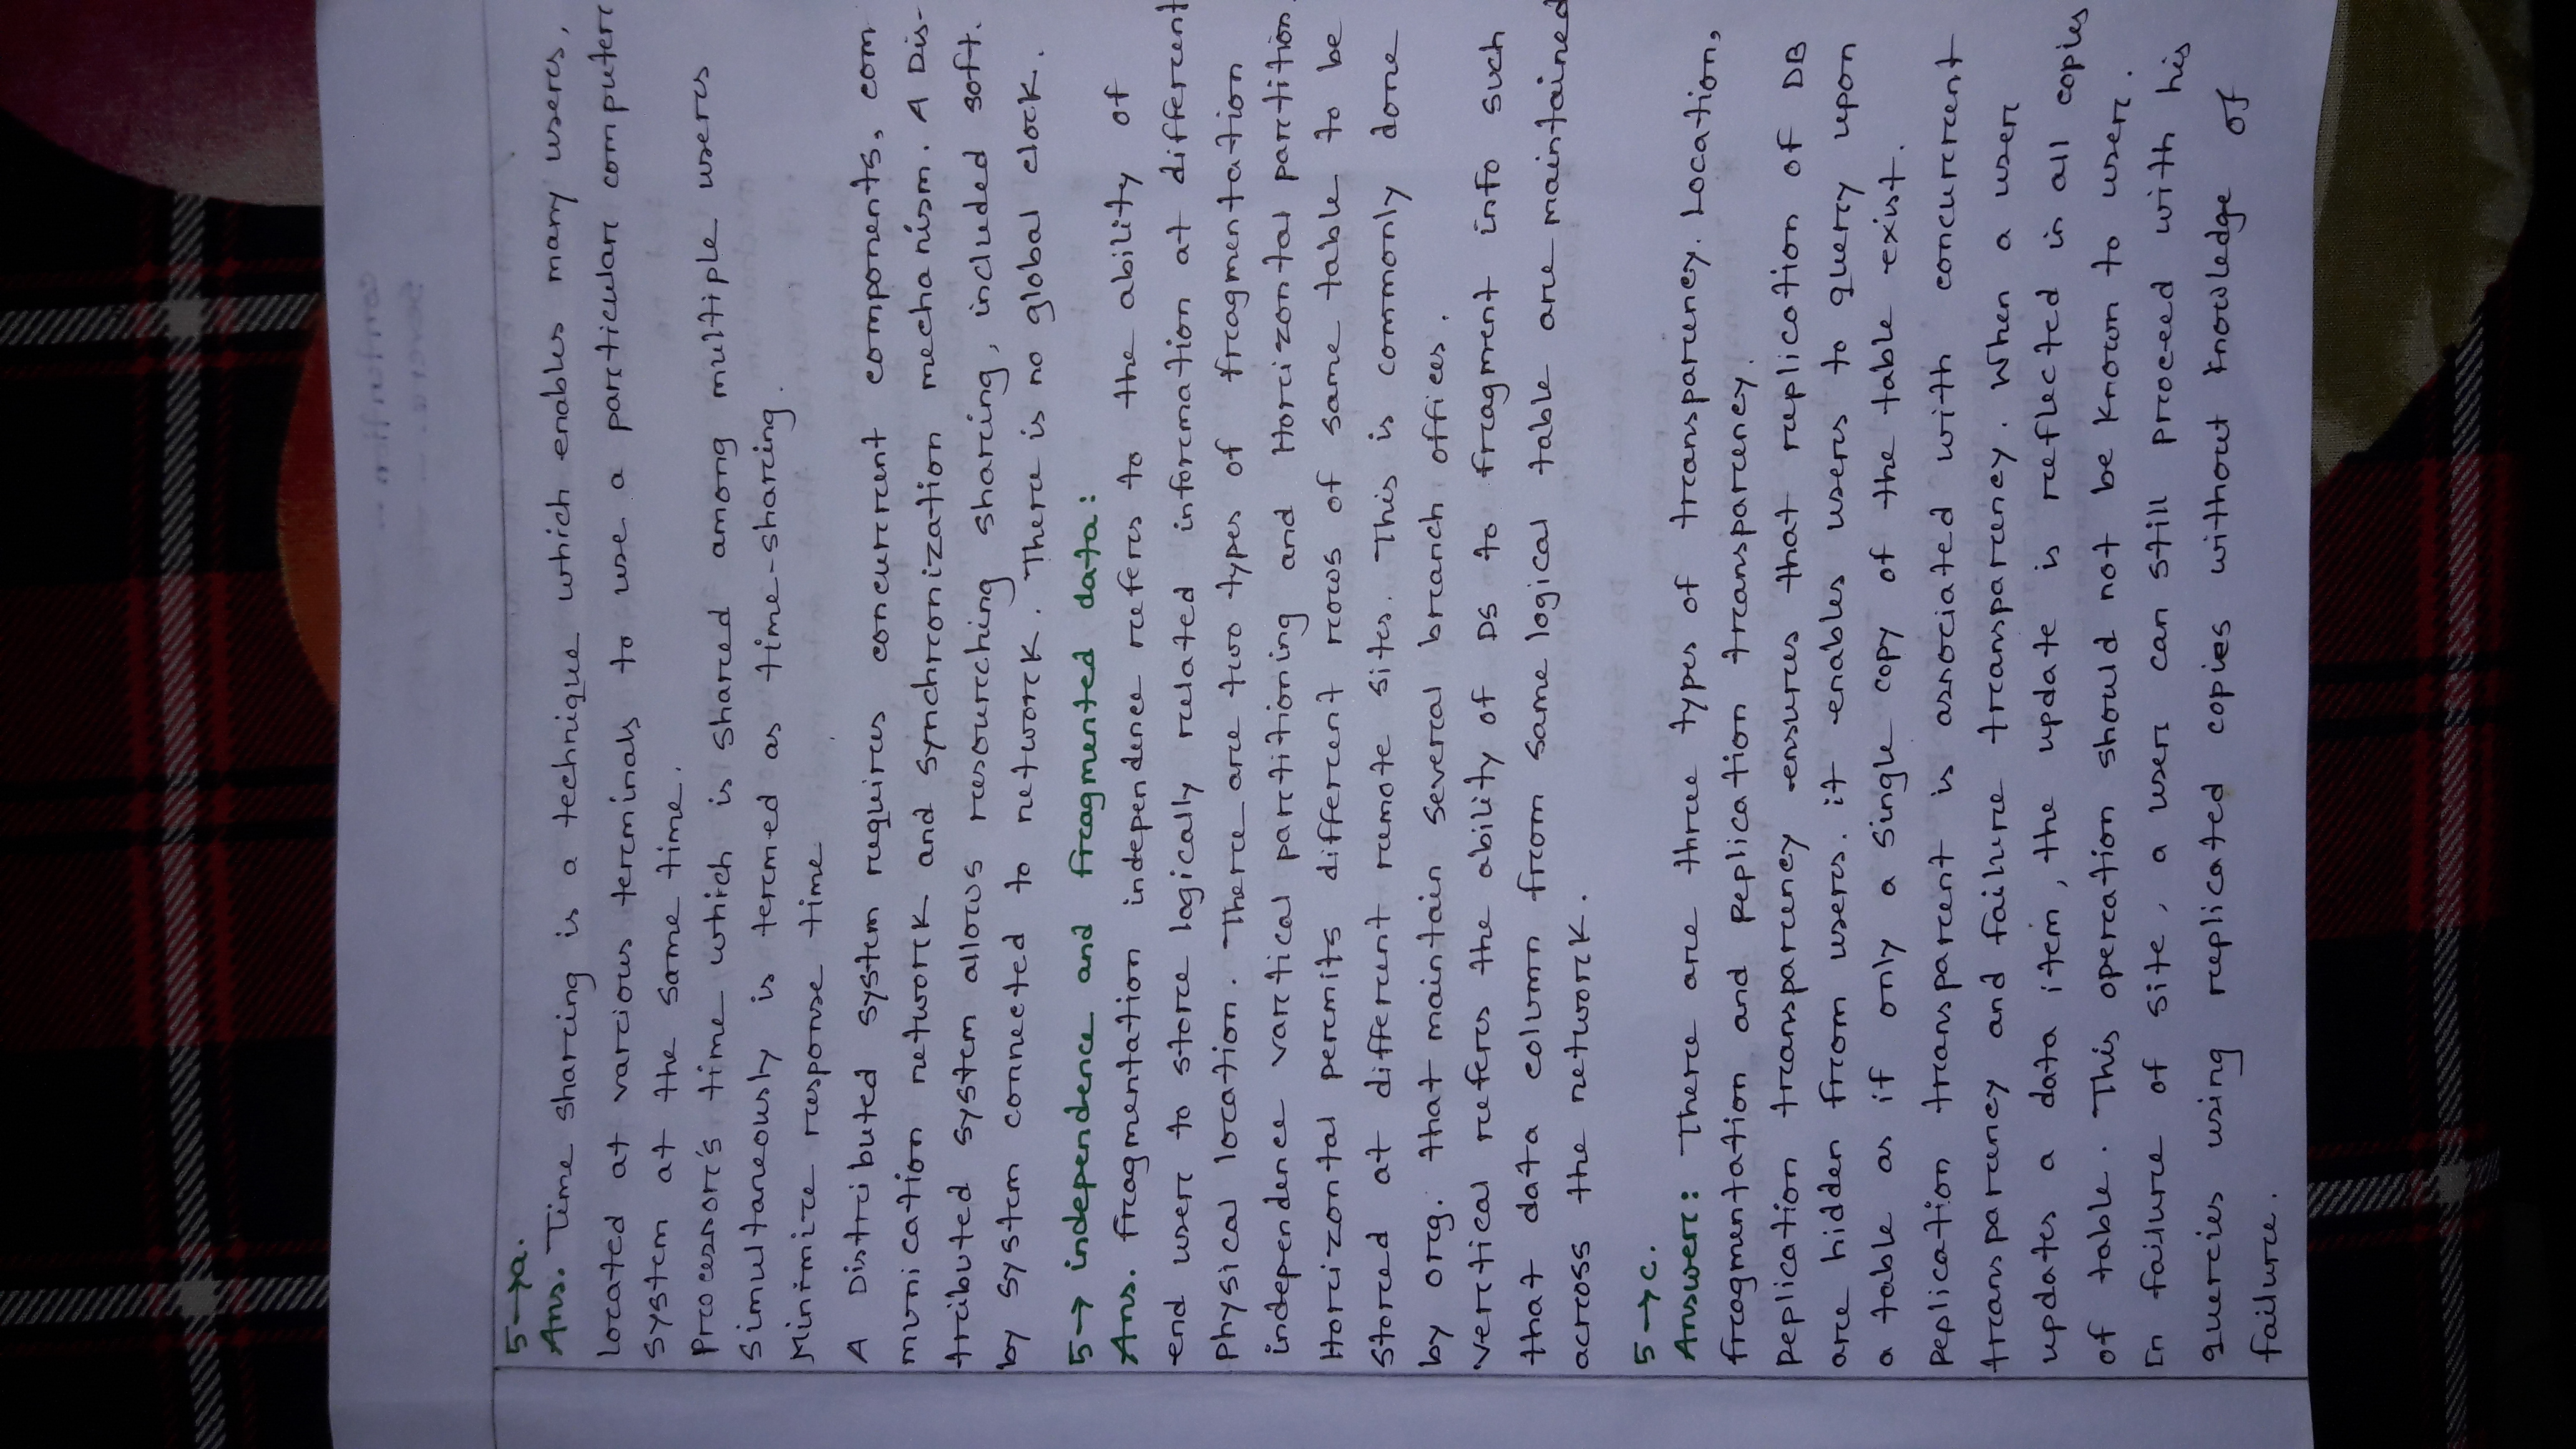 5→a.
Ans. Time sharing is a technique which enables many users,
located at various terminals to use a particular computer
system at the same time.
Processor's time which is shared among multiple users
simultaneously is termed as time-sharing.
Minimize response time
A Distributed system requires concurrent components, com
munication network and synchronization mechanism. A Dis-
tributed system allows resourching sharing, included soft.
by system connected to network. There is no global clock.
5→ independence and fragmented data:
Ans. fragmentation independence refers to the ability of
end user to store logically related information at different
physical location. There are two types of fragmentation
independence vartical partitioning and Horizontal partition.
Horizontal permits different rows of same table to be
stored at different remote sites. This is commonly done
by org. that maintain several branch offices.
vertical refers the ability of DS to fragment into such
that data column from same logical table are maintained
across the network.
5→c.
Answer: There are three types of transparency. Location,
fragmentation and Replication transparency.
Replication transparency ensures that replication of DB
are hidden from users. it enables users to query upon
a table as if only a single copy of the table exist.
Replication transparent is associated with concurrent
transparency and failure transparency. When a user
updates a data item, the update is reflected in all copies
of table. This operation should not be known to user.
In failure of site, a user can still proceed with his
queries using replicated copies without knowledge of
failure.